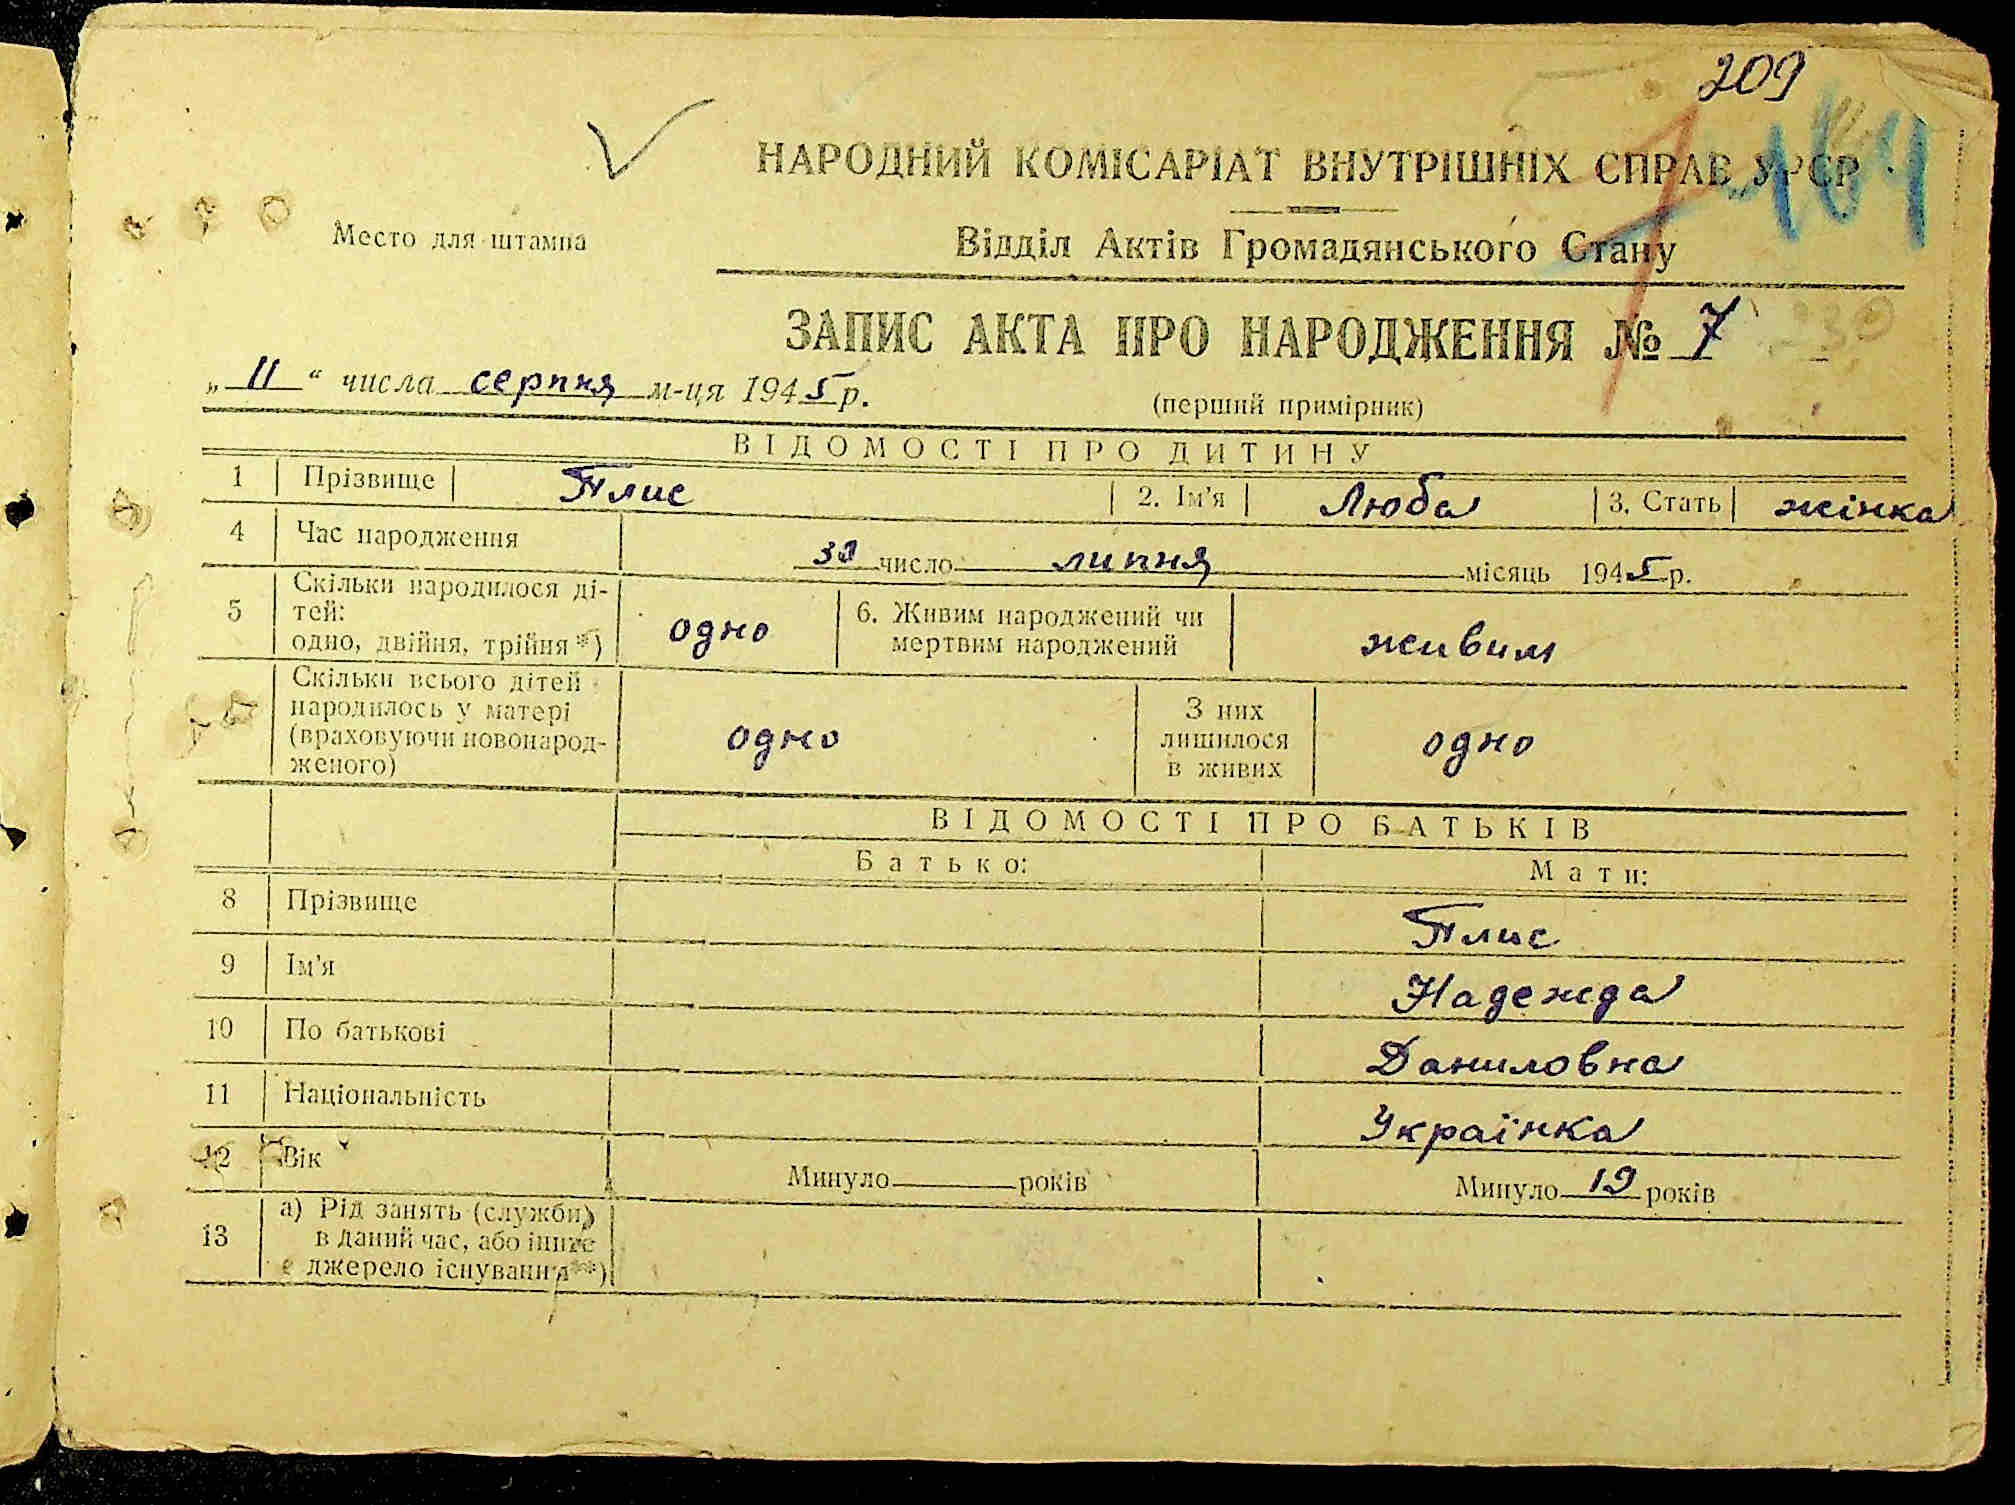 209
НАРОДНИЙ КОМІСАРІАТ ВНУТРІШНІХ СПРАВ УРСР
164
Место для штампа
Відділ Актів Громадянського Стану
ЗАПИС АКТА ПРО НАРОДЖЕННЯ № 7
„ 11 “ числа серпня м-ця 1945 р.
(перший примірник)
ВІДОМОСТІ ПРО ДИТИНУ
1 Прізвище Плис 2. Ім'я Люба 3. Стать жінка
4 Час народження 30 число липня місяць 1945 р.
5 Скільки народилося ді-
тей:
одно, двійня, трійня*) одно 6. Живим народжений чи
мертвим народжений живим
Скільки всього дітей
народилось у матері
(враховуючи новонарод-
женого) одно З них
лишилося
в живих одно
ВІДОМОСТІ ПРО БАТЬКІВ
Батько: Мати:
8 Прізвище Плис
9 Ім'я Надежда
10 По батькові Даниловна
11 Національність Українка
12 Вік Минуло років Минуло 19 років
13 а) Рід занять (служби)
в даний час, або інше
джерело існування**)